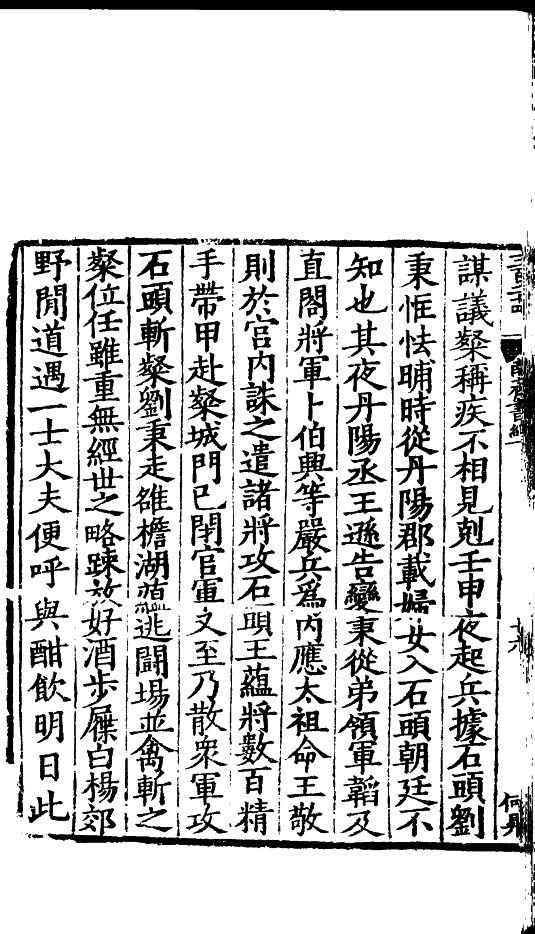 謀議粲稱疾不相見剋壬申夜起兵據石頭劉
秉恇怯晡時從丹陽郡載婦女入石頭朝廷不
知也其夜丹陽丞王遜告變秉從弟領軍韞及
直閤將軍卜伯興等嚴兵爲內應太祖命王敬
則於宮內誅之遣諸將攻石頭王蘊將數百精
手帶甲赴粲城門已閉官軍又至乃散衆軍攻
石頭斬粲劉秉走雒檐湖蘊逃鬬場並禽斬之
粲位任雖重無經世之略踈放好酒步屧白楊郊
野閒道遇一士大夫便呼與酣飲明日此